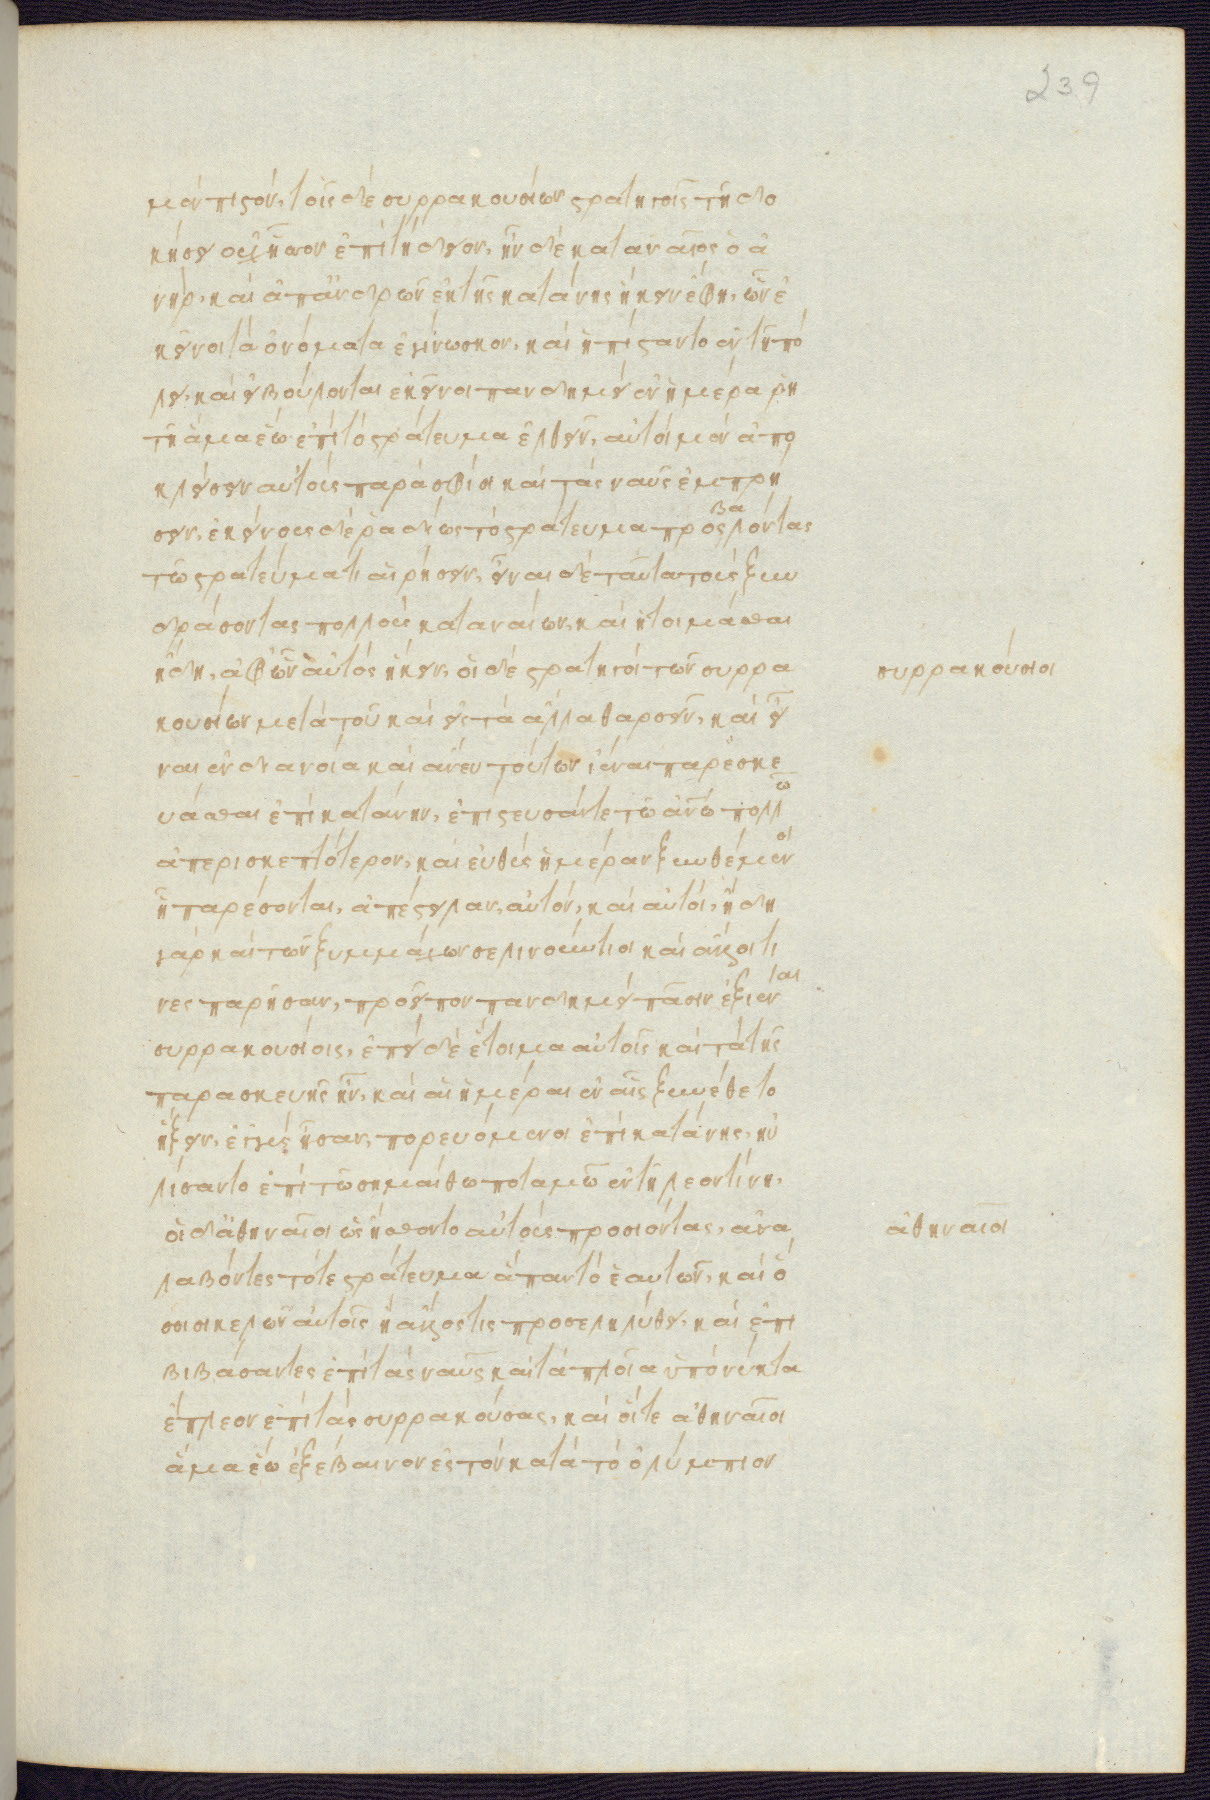 239
μὲν πιστόν, τοῖς δὲ συρρακουσίων στρατηγοῖς τῇ δο
κήσει οὐχ ἧσσον ἐπιτήδειον, ἦν δὲ καταναῖος ὁ ἀ
νήρ, καὶ ἀπ' ἀνδρῶν ἐκ τῆς κατάνης ἥκειν ἔφη, ὧν ἐ
κεῖνοι τὰ ὀνόματα ἐγίνωσκον, καὶ ἠπίσταντο ἐν τῇ πό
λει, καὶ εἰ βούλονται ἐκεῖνοι πανδημεὶ ἐν ἡμέρα ῥη
τῇ ἅμα ἕω ἐπὶ τὸ στράτευμα ἐλθεῖν, αὐτοὶ μὲν ἀπο
κλείσειν αὐτοὺς παρὰ σφίσι καὶ τὰς ναῦς ἐμπρή
σειν, ἐκείνους δὲ ῥαδίως τὸ στράτευμα προσβαλόντας
τῷ στρατεύματι αἱρήσειν, εἶναι δὲ ταῦτα τοὺς ξυν
δράσοντας πολλοὺς καταναίων, καὶ ἡτοιμάσθαι
ἤδη, ἀφ' ὧν αὐτὸς ἥκειν, οἱ δὲ στρατηγοὶ τῶν συρρα
συρρακούσιοι
κουσίων μετὰ τοῦ καὶ εἰς τὰ ἄλλα θαρσεῖν, καὶ εἶ
ναι ἐν διανοία καὶ ἄνευ τούτων ἰέναι παρεσκε
υάσθαι ἐπὶ κατάνην, ἐπίστευσάν τε τῷ ἀνῷ πολλῷ
ἀπερισκεπτότερον, καὶ εὐθὺς ἡμέραν ξυνθέμενοι
ᾗ παρέσονται, ἀπέστειλαν, αὐτόν, καὶ αὐτοί, ἤδη
γὰρ καὶ τῶν ξυμμάχων σελινούντιοι καὶ ἄλλοι τι
νες παρῆσαν, προεῖπον πανδημεὶ πᾶσιν ἐξιέναι
συρρακουσίοις, ἐπεὶ δὲ ἕτοιμα αὐτοῖς καὶ τὰ τῆς
παρασκευῆς ἦν, καὶ αἱ ἡμέραι ἐν αἷς ξυνέθετο
ἥξειν, ἐγγὺς ἦσαν, πορευόμενοι ἐπὶ κατάνης, ηὐ
λίσαντο ἐπὶ τῷ σημαίθω ποταμῷ ἐν τῇ λεοντίνη,
οἱ δ' ἀθηναῖοι ὡς ἤσθοντο αὐτοὺς προσιόντας, ἀνα
ἀθηναῖοι
λαβόντες τό τε στράτευμα ἅπαν τὸ ἑαυτῶν, καὶ ὅ
σοι σικελῶν αὐτοῖς ἢ ἄλλος τις προσεληλύθει, καὶ ἐπι
βιβάσαντες ἐπὶ τὰς ναῦς καὶ τὰ πλοῖα ὑπὸ νύκτα
ἔπλεον ἐπὶ τὰς συρρακούσας, καὶ οἵ τε ἀθηναῖοι
ἅμα ἕω ἐξέβαινον ἐς τὸν κατὰ τὸ ὀλύμπιον